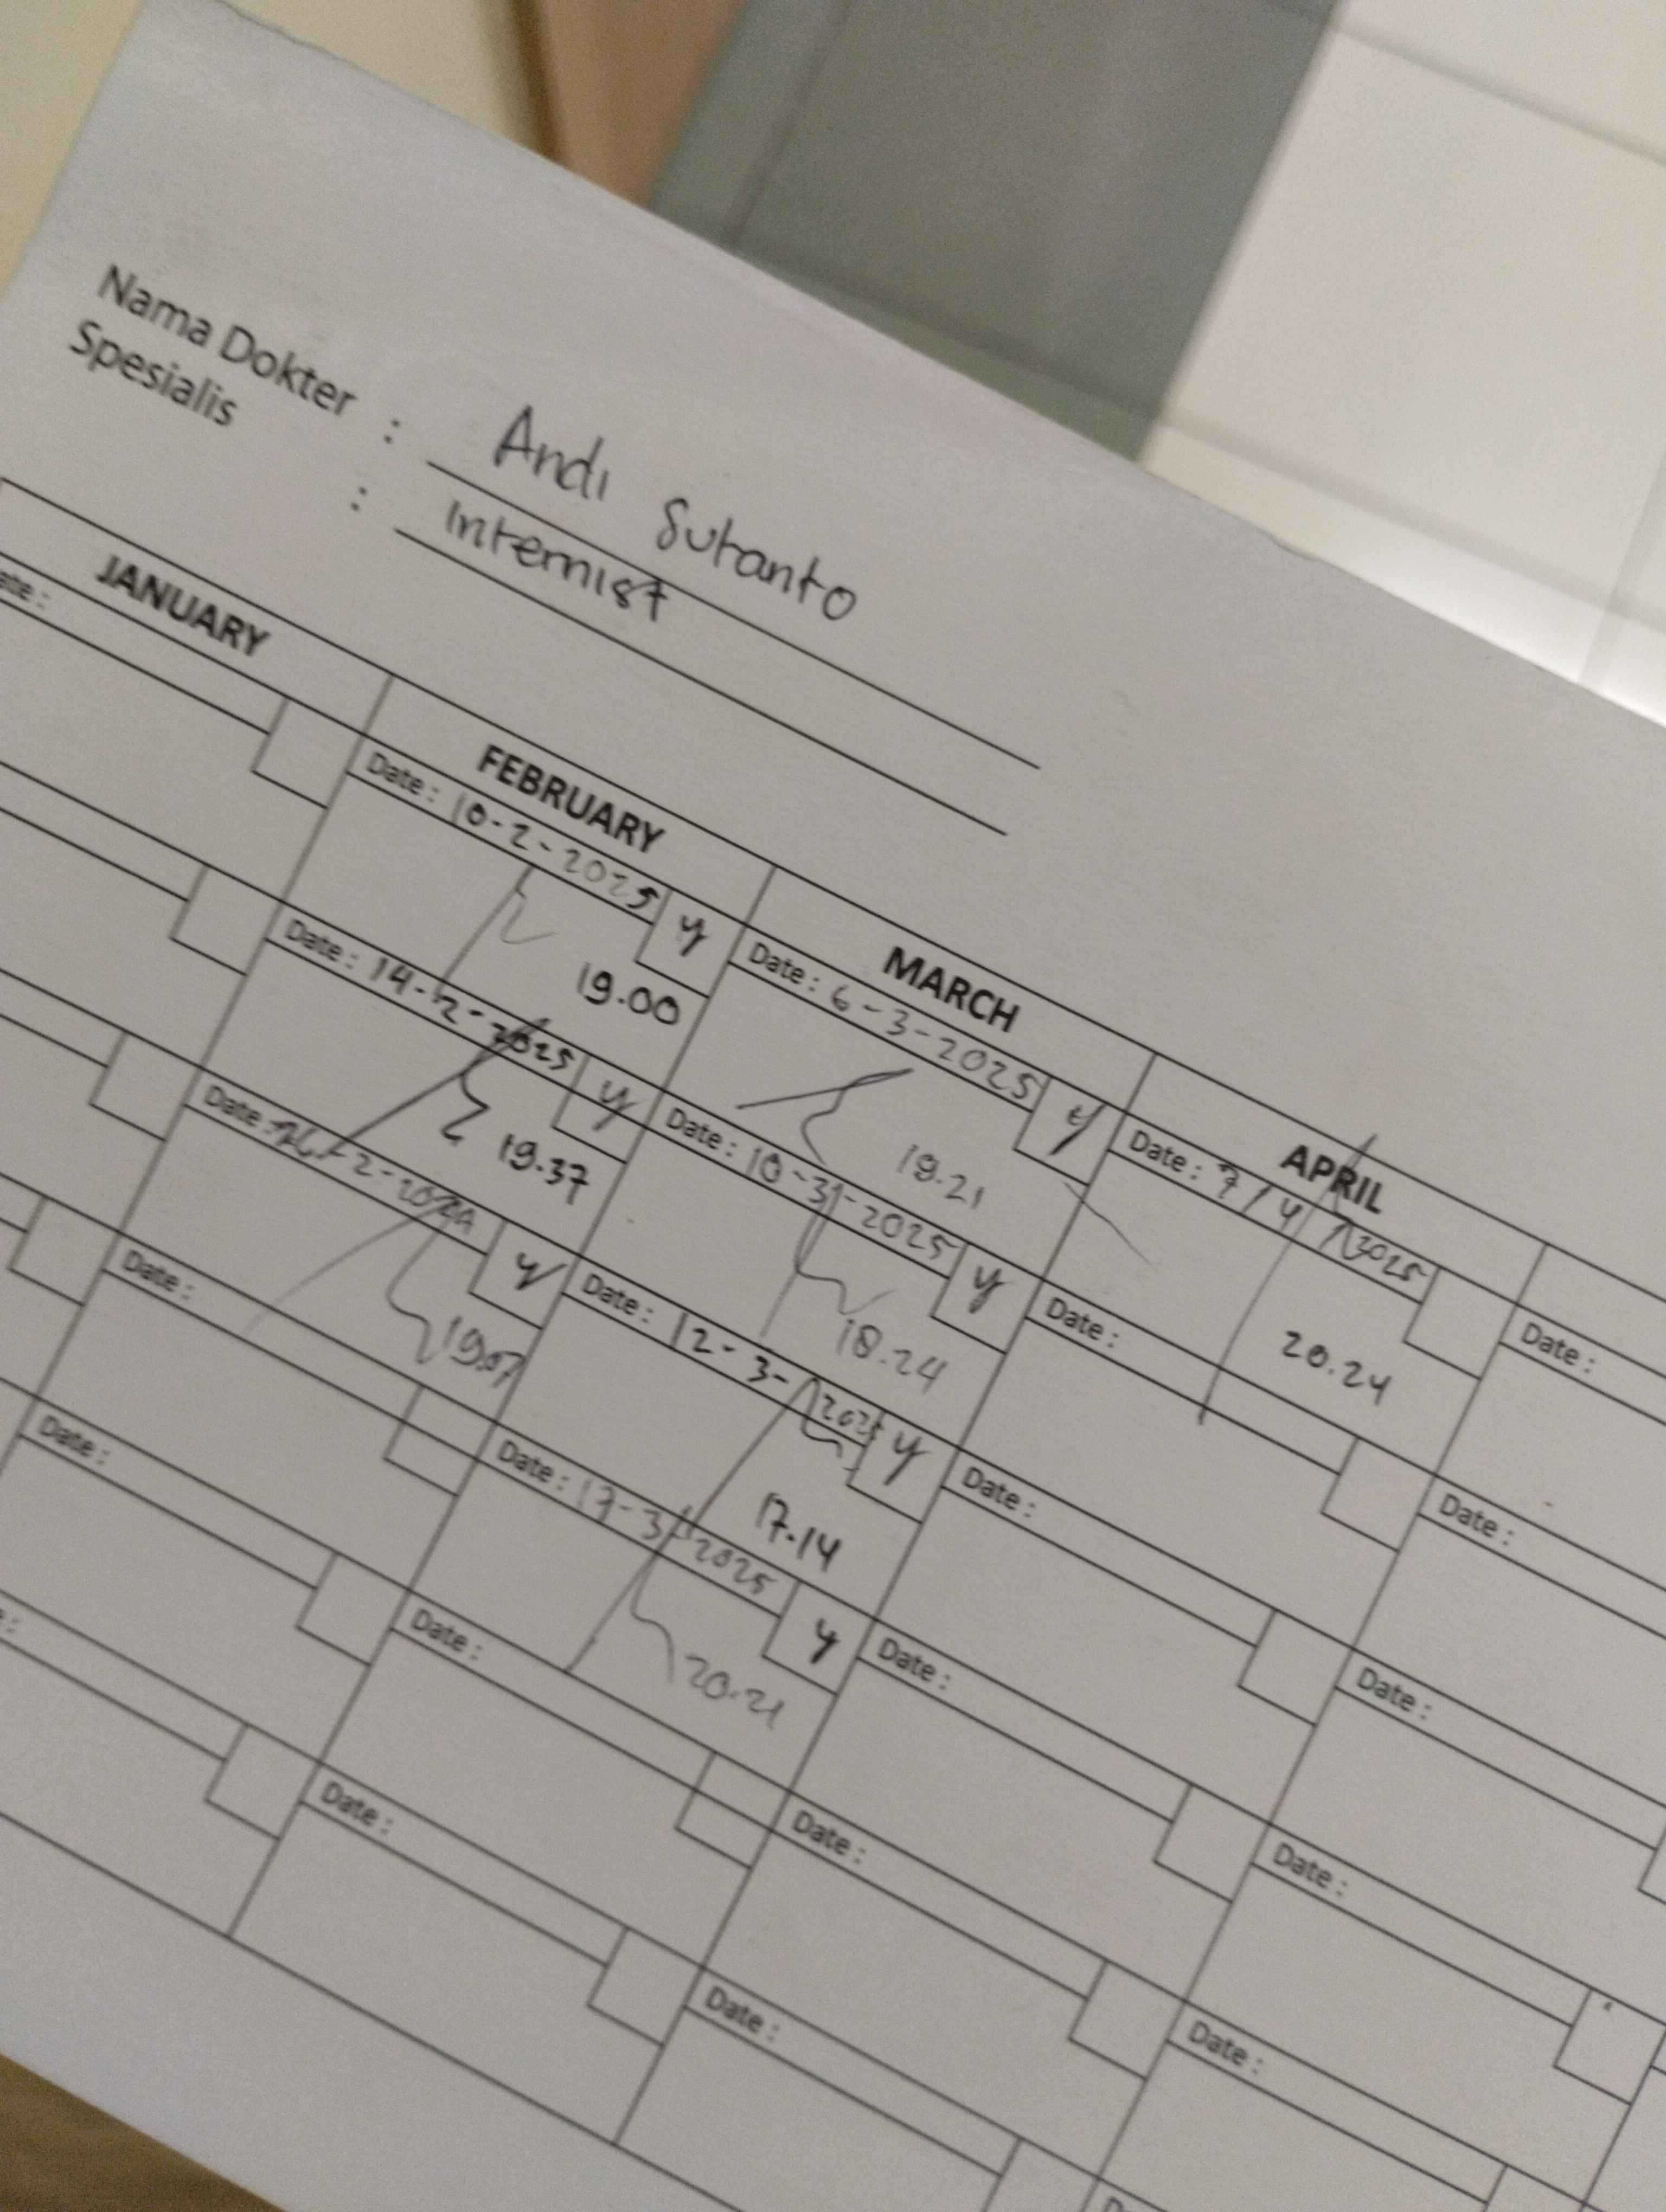 Nama Dokter : Andi Sutanto
Spesialis : Internist
JANUARY FEBRUARY MARCH APRIL
Date : 10-2-2025 y
19.00
Date : 14-2-2025 y
19.37
Date : -2- y
19.07
Date :
Date :
Date :
Date :
Date : 6-3-2025 y
19.21
Date : 10-3-2025 y
18.24
Date : 12-3-2025 y
17.14
Date : 17-3-2025 y
20.21
Date :
Date :
Date : 7/4/2025
20.24
Date :
Date :
Date :
Date :
Date :
Date :
Date :
Date :
Date :
Date :